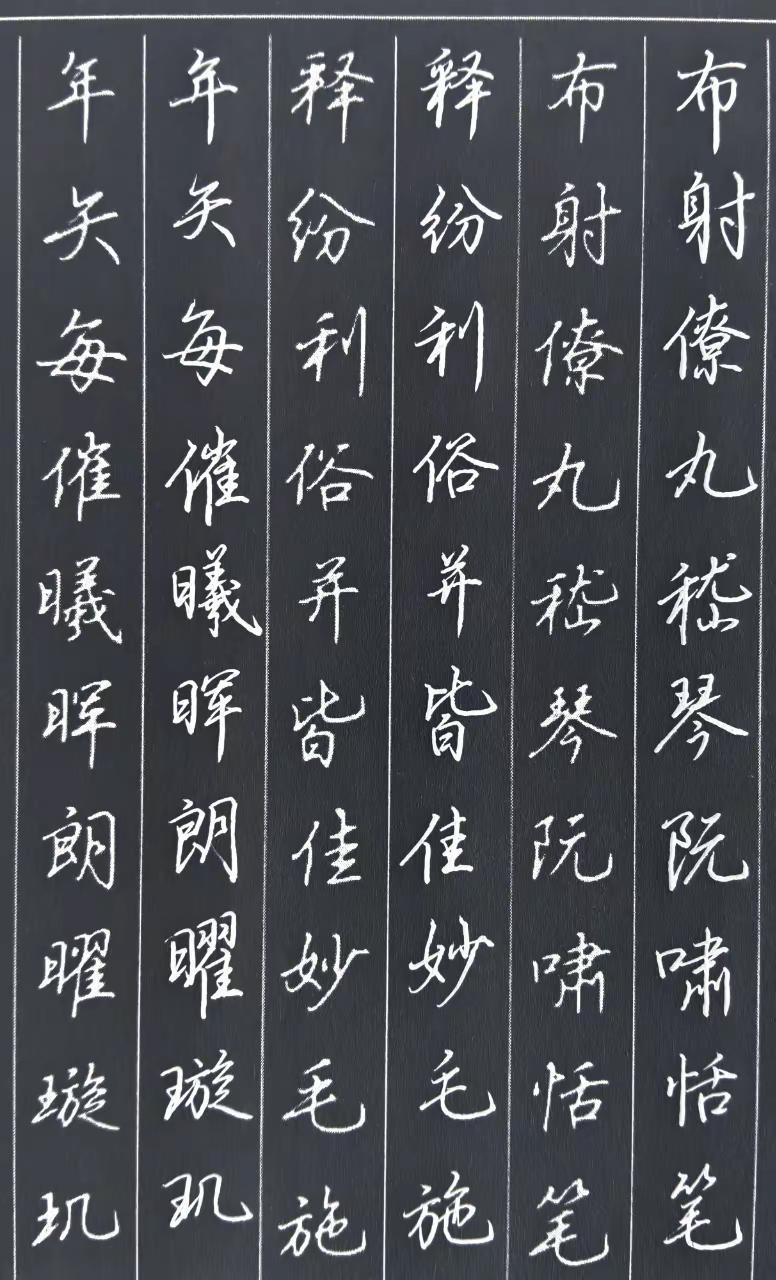 布射僚丸嵇琴阮啸恬笔
布射僚丸嵇琴阮啸恬笔
释纷利俗并皆佳妙毛施
释纷利俗并皆佳妙毛施
年矢每催曦晖朗曜璇玑
年矢每催曦晖朗曜璇玑